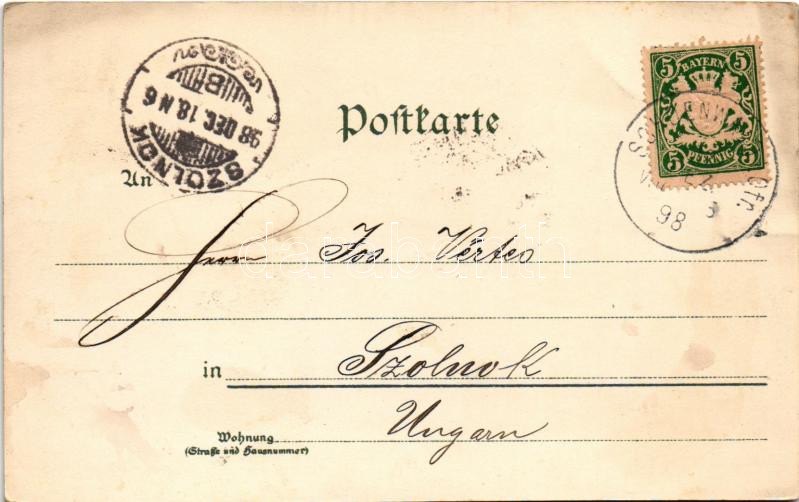 Postkarte
5 BAYERN 5
5 PFENNIG 5
98
Ofr.
SZOLNOK
98 DEC 18 N 6
B
An
Herrn Jos. Vértes
in Szolnok
Ungarn
Wohnung
(Straße und Hausnummer)
darabanth